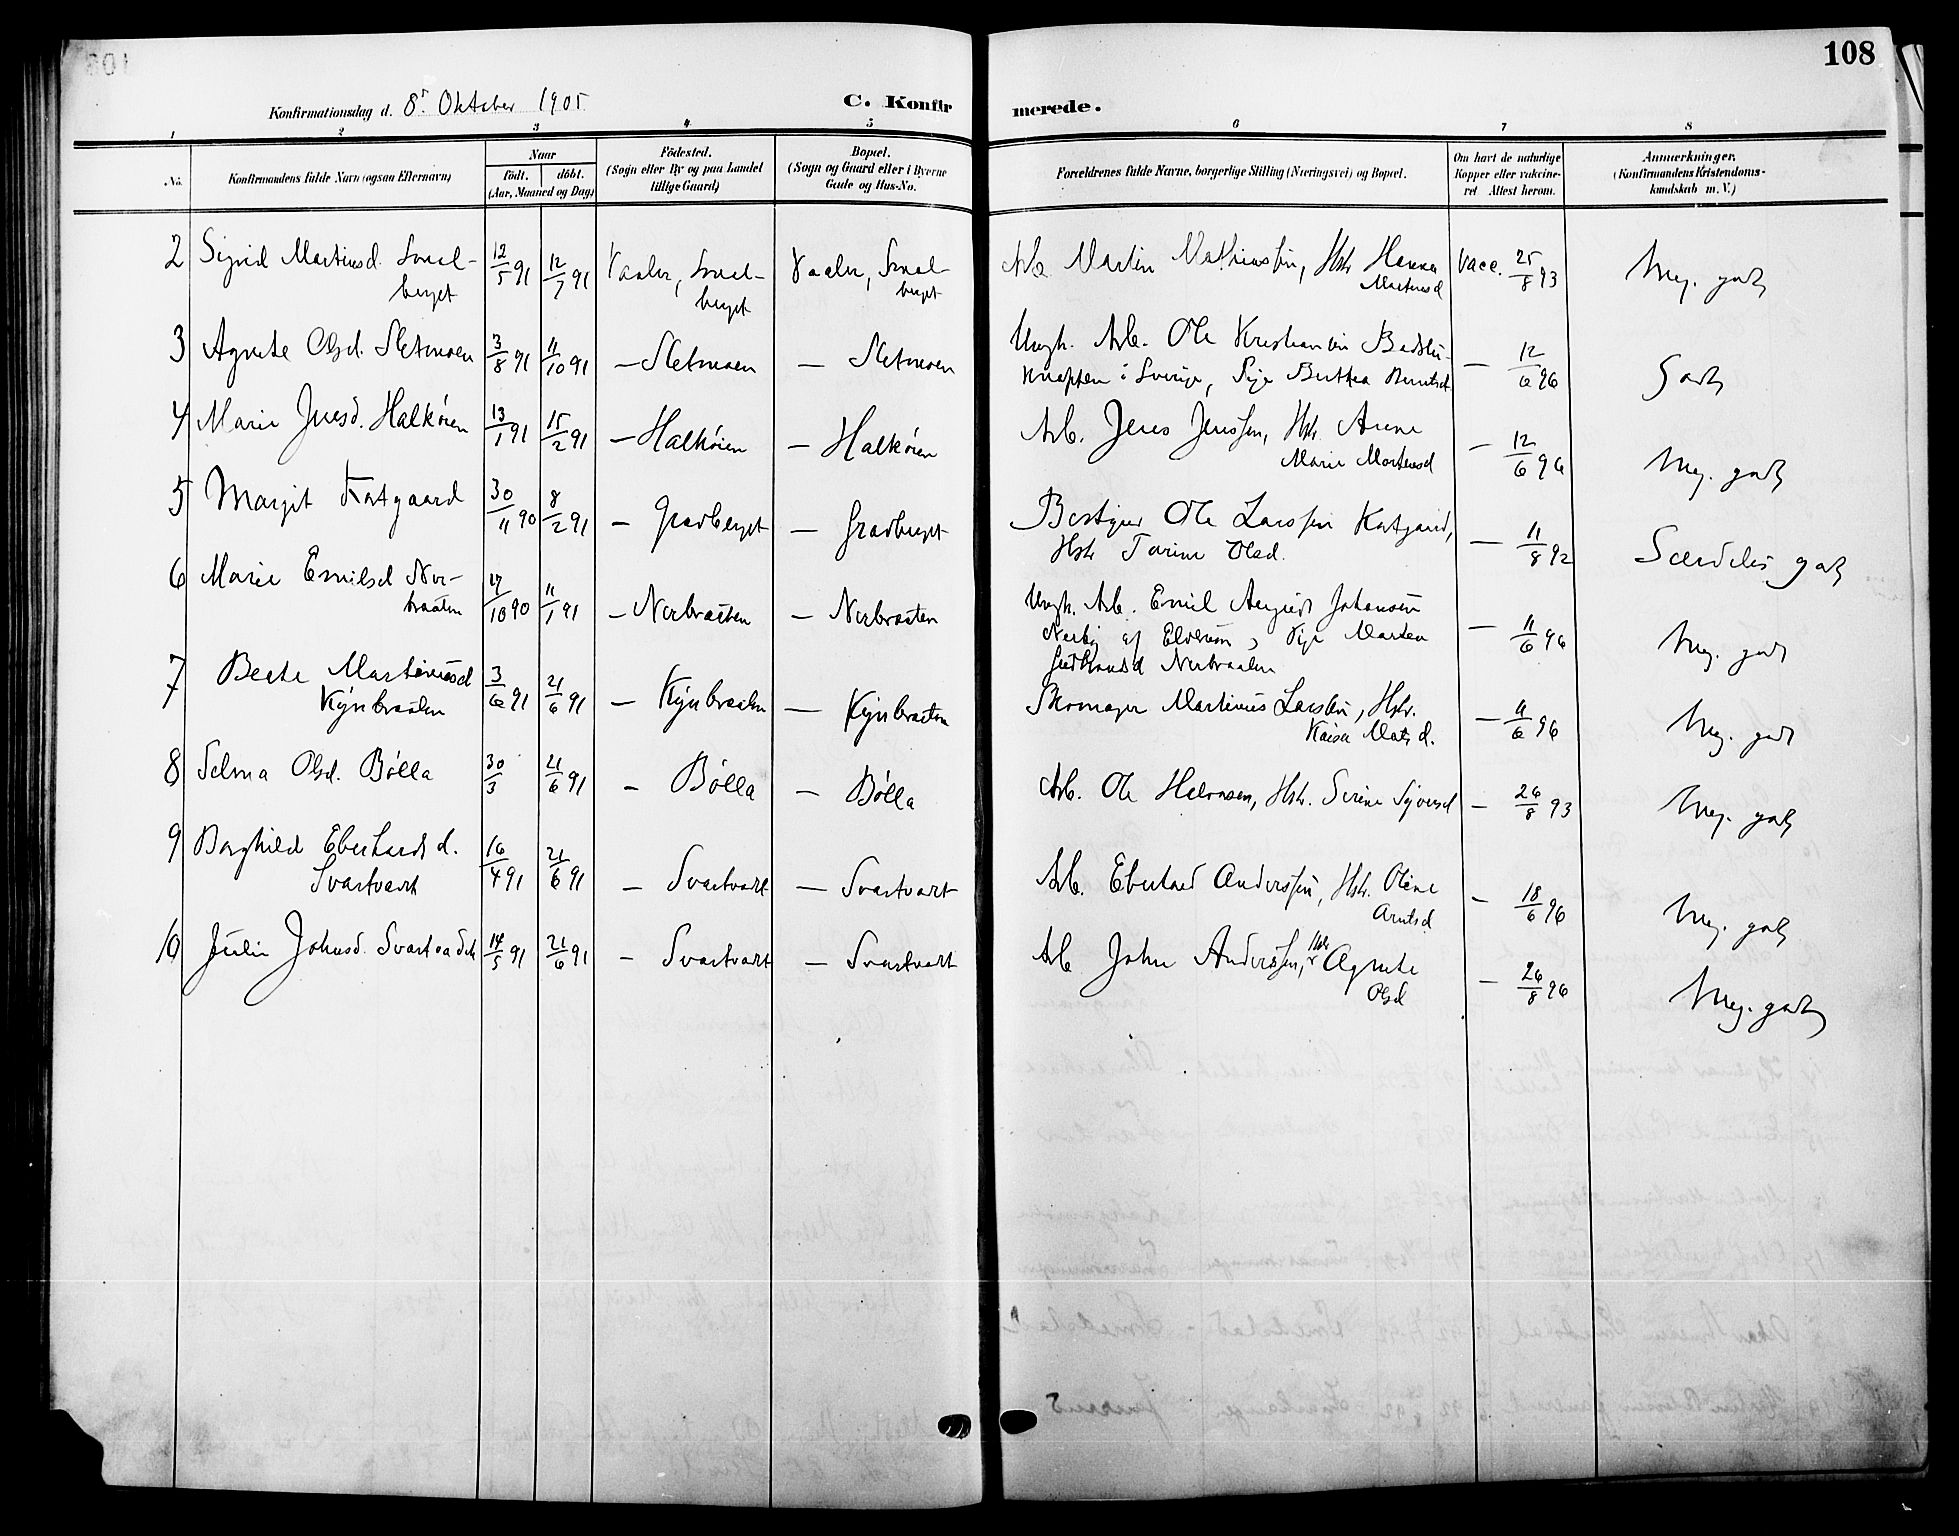 108
Konfirmationsdag d. 8. Oktober 1905
C. Konfirmerede.
1 2 3 4 5 6 7 8
No.
Konfirmandens fulde Navn (ogsaa Efternavn)
Naar
födt. döbt.
(Aar, Maaned og Dag)
Födested.
(Sogn eller By og paa Landet
tillige Gaard)
Bopæl.
(Sogn og Gaard eller i Byerne
Gade og Hus-No.
Forældrenes fulde Navne, borgerlige Stilling (Næringsvei) og Bopæl.
Om havt de naturlige
Kopper eller vakcine-
ret Attest herom.
Anmærkninger.
(Konfirmandens Kristendoms-
kundskab m. V.)
2 Sigrid Martinsd. Smal-
berget
12/5 91 12/7 91 Vaaler, Smal-
berget
Vaaler, Smal-
berget
Arb. Martin Mathiassen, Hstr Hanna
Martinsd
Vacc. 25/8 93 Meg. godt
3 Agnete Olsd. Sletmoen 3/8 91 11/10 91 — Sletmoen — Sletmoen
Ungk. Arb. Ole Kristiansen
i Sverige, Pige Berthea Berntsd
— 12/6 96 Godt
4 Marie Jensd. Halkøien 13/1 91 15/2 91 — Halkøien — Halkøien
Arb. Jens Jenssen, Hstr. Anne
Marie Martinsd
— 12/6 96 Meg. godt
5 Margit Katgaard 30/11 90 8/2 91 — Gravberget — Gravberget
Bestyrer Ole Larssen Katgaard,
Hstr Karine Olsd.
— 11/8 92 Særdeles godt
6 Marie Emilsd Ner-
braaten
17/10 90 11/1 91 — Nerbraaten — Nerbraaten
Ungk. Arb. Emil August Johansen
Nerby af Elverum, Pige Marten
Gudbrandsd Nerbraaten
— 11/6 96 Meg. godt
7 Beate Martinusd
Kynbraaten
3/6 91 21/6 91 — Kynbraaten — Kynbraaten
Skomager Martinus Larssen, Hstr.
Kaisa Matsd.
— 11/6 96 Meg. godt
8 Selma Olsd. Bølla 30/3 21/6 91 — Bølla — Bølla
Arb. Ole Halvorsen, Hstr. Serine Syversd — 26/8 93 Meg. godt
9 Borghild Eberhardtsd.
Svartvadt
16/4 91 21/6 91 — Svartvadt — Svartvadt
Arb. Eberhard Anderssen, Hstr. Oline
Arntsd
— 18/6 96 Meg. godt
10 Julie Johnsd. Svartvadt 14/5 91 21/6 91 — Svartvadt — Svartvadt
Arb John Anderssen, Hstr Agnete
Olsd
— 26/8 96 Meg. godt